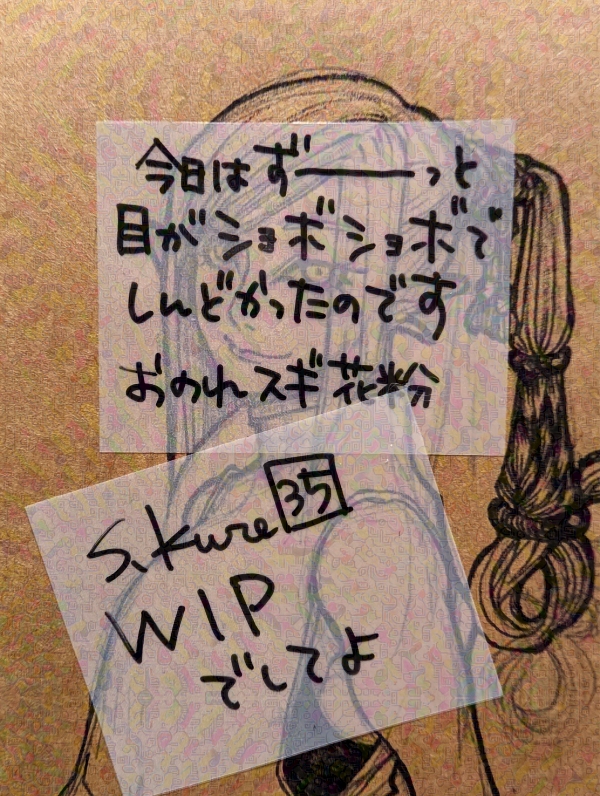 今日はずーーっと
目がショボショボで
しんどかったのです
おのれスギ花粉
S.Kure 35
WIP
でしてよ